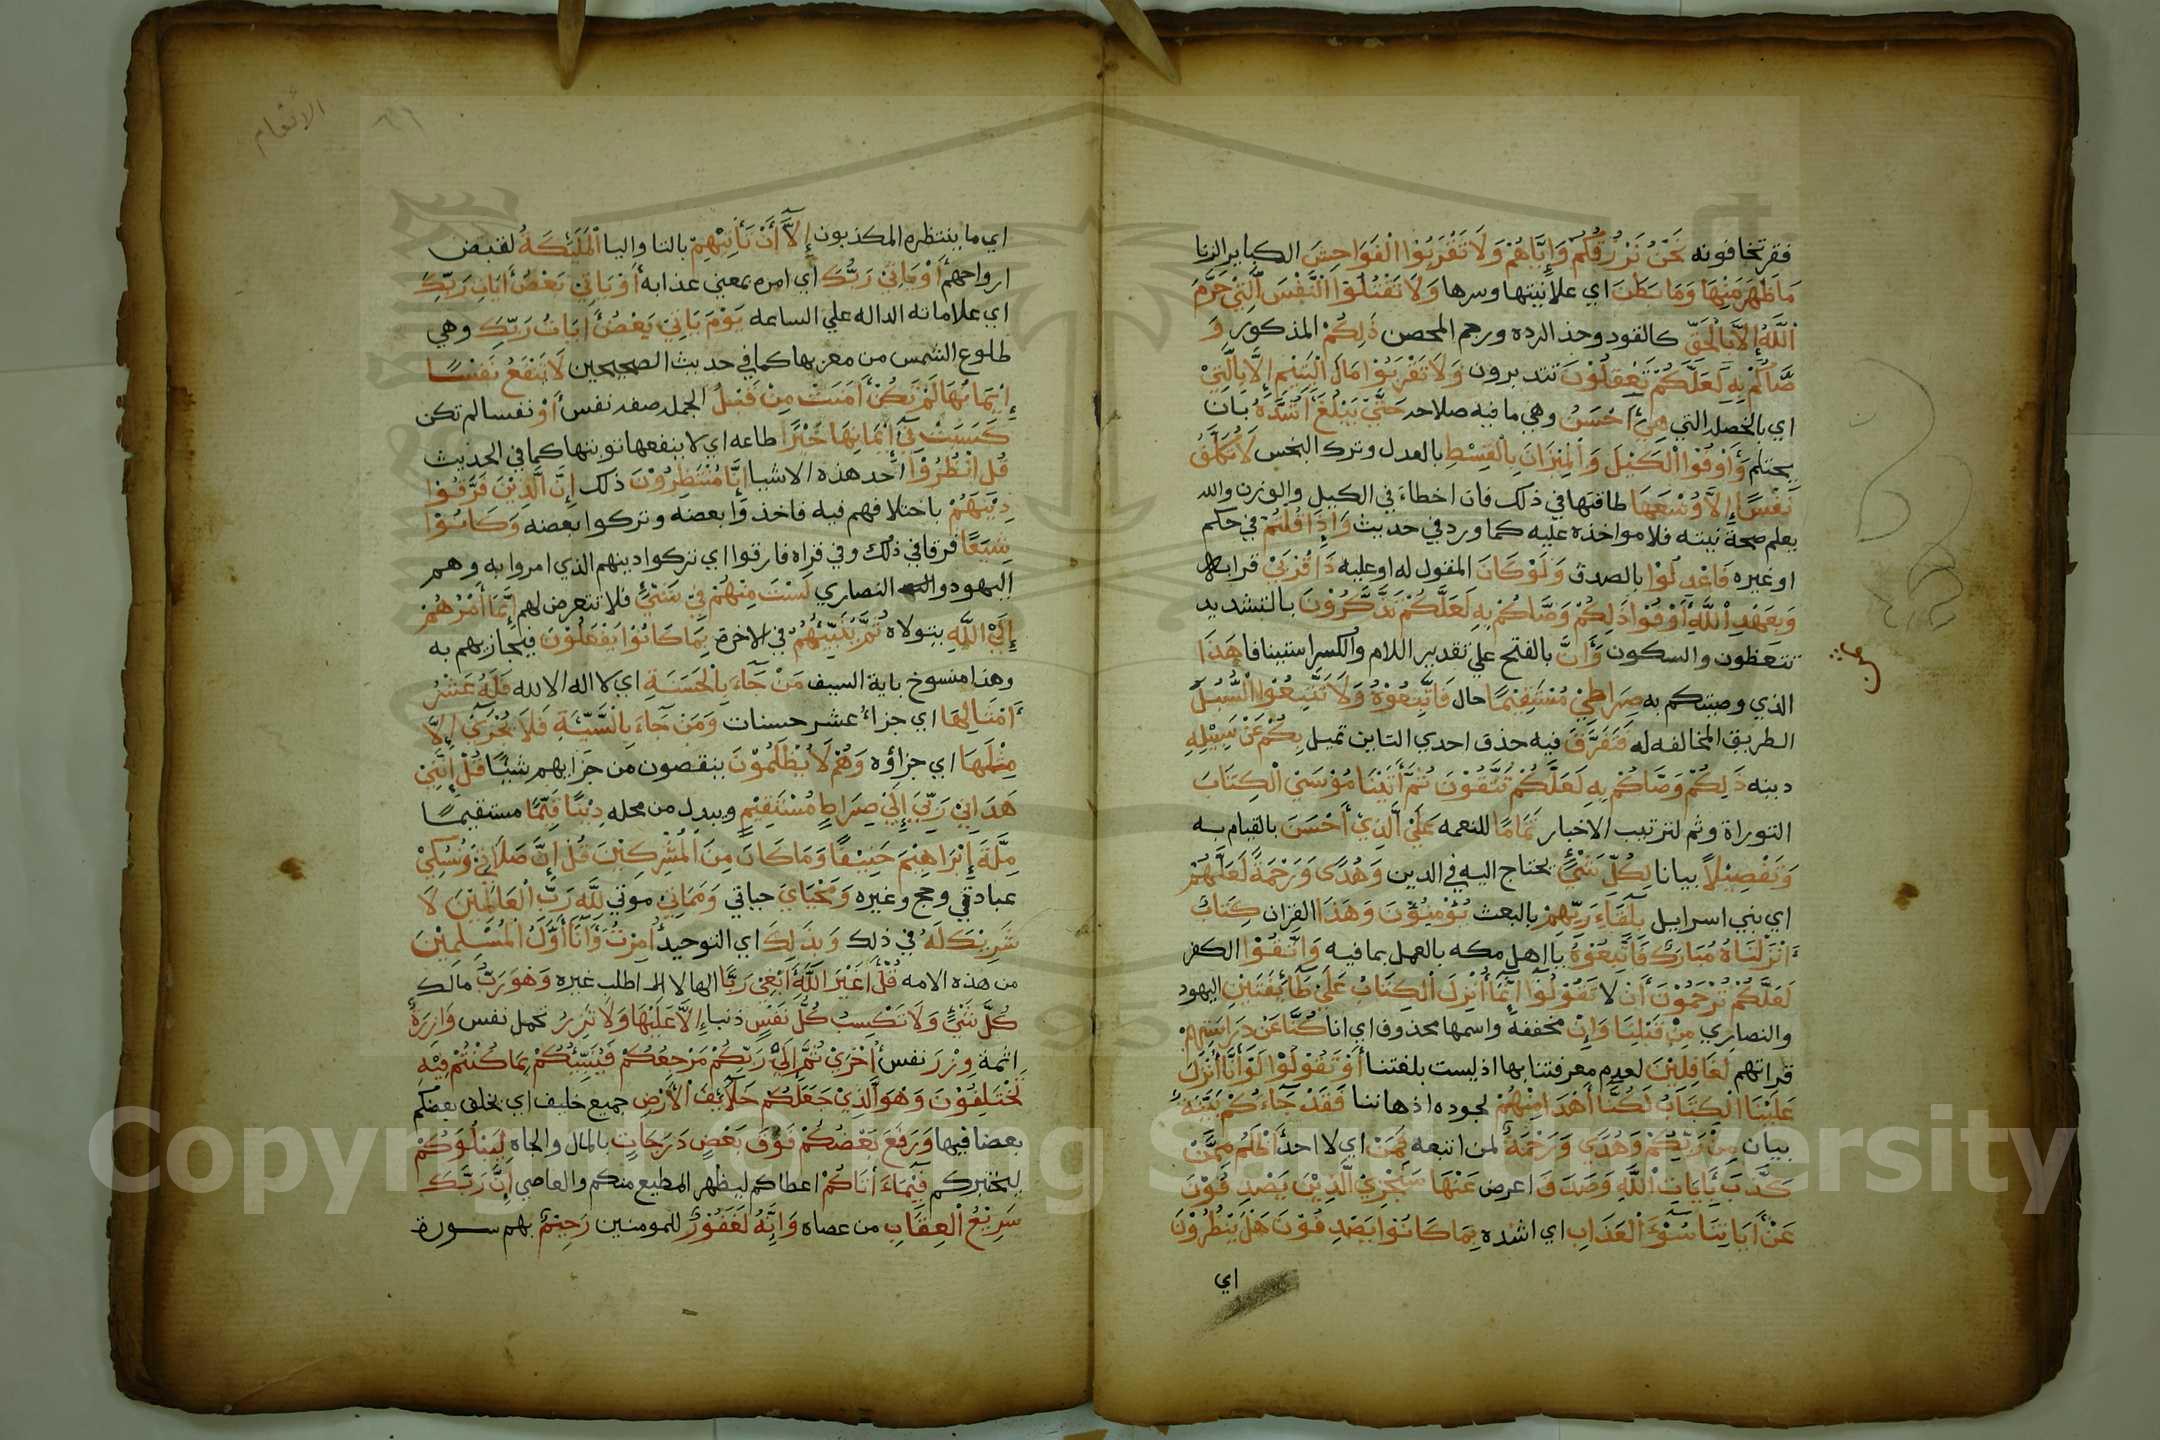 فقر تخافونه نَحْنُ نَرْزُقُكُمْ وَإِيَّاهُمْ وَلَا تَقْرَبُوْا الْفَوَاحِشَ الكباير الزنا
مَاظَهَرَ مِنْهَا وَمَا بَطَنَ اي علانيتها وسرها وَلَا تَقْتُلُوْا النَّفْسَ الَّتِيْ حَرَّمَ
اللَّهُ إِلَّا بِالْحَقِّ كالقود وحد الرده ورجم المحصن ذَلِكُمْ المذكور وَ
صَّاكُمْ بِهِ لَعَلَّكُمْ تَعْقِلُوْنَ تتدبرون وَلَا تَقْرَبُوْا مَالَ الْيَتِيْمِ إِلَّا بِالَّتِيْ
اي بالخصله التي هِيَ أَحْسَنُ وهي ما فيه صلاحه حَتَّى يَبْلُغَ أَشُدَّهُ بان
يحتلم وَأَوْفُوْا الْكَيْلَ وَالْمِيْزَانَ بِالْقِسْطِ بالعدل وترك البخس لَا نُكَلِّفُ
نَفْسًا إِلَّا وُسْعَهَا طاقتها في ذلك فان اخطاء في الكيل والوزن والله
يعلم صحة نيته فلا مواخذه عليه كما ورد في حديث وَإِذَا قُلْتُمْ في حكم
او غيره فَاعْدِلُوْا بالصدق وَلَوْ كَانَ المقول له او عليه ذَا قُرْبَيْ قرابه
وَبِعَهْدِ اللَّهِ أَوْفُوْا ذَلِكُمْ وَصَّاكُمْ بِهِ لَعَلَّكُمْ تَذَّكَّرُوْنَ بالتشديد
تتعظون والسكون وَأَنَّ بالفتح علي تقدير اللام والكسر استينافا هَذَا
الذي وصيتكم به صِرَاطِيْ مُسْتَقِيْمًا حال فَاتَّبِعُوْهُ وَلَا تَتَّبِعُوْا السُّبُلَ
الطريق المخالفه له فَتَفَرَّقَ فيه حذف احدي التاين تميل بِكُمْ عَنْ سَبِيْلِهِ
دينه ذَلِكُمْ وَصَّاكُمْ بِهِ لَعَلَّكُمْ تَتَّقُوْنَ ثُمَّ أَتَيْنَا مُوْسَيْ الْكِتَابَ
التوراة وثم لترتيب الاخبار تَمَامًا للنعمه عَلَيْ الَّذِيْ أَحْسَنَ بالقيام به
وَتَفْصِيْلًا بيانا لِكُلِّ شَيْءٍ يحتاج اليه في الدين وَهُدًى وَرَحْمَةً لَعَلَّهُمْ
اي بني اسراييل بِلِقَاءِ رَبِّهِمْ بالبعث يُؤْمِنُوْنَ وَهَذَا القران كِتَابٌ
أَنْزَلْنَاهُ مُبَارَكٌ فَاتَّبِعُوْهُ يا اهل مكه بالعمل بما فيه وَاتَّقُوْا الكفر
لَعَلَّكُمْ تُرْحَمُوْنَ أَنْ لا تَقُوْلُوْا إِنَّمَا أُنْزِلَ الْكِتَابُ عَلَيْ طَائِفَتَيْنِ اليهود
والنصاري مِنْ قَبْلِنَا وَإِنْ مخففة واسمها محذوف اي انا كُنَّا عَنْ دِرَاسَتِهِمْ
قراتهم لَغَافِلِيْنَ لعدم معرفتنا بها اذ ليست بلغتنا أَوْ تَقُوْلُوْا لَوْ أَنَّا أُنْزِلَ
عَلَيْنَا الْكِتَابُ لَكُنَّا أَهْدَا مِنْهُمْ لجوده اذهاننا فَقَدْ جَاءَكُمْ بَيِّنَةٌ
بيان مِنْ رَبِّكُمْ وَهُدَي وَرَحْمَةٌ لمن اتبعه فَمَنْ اي لا احد أَظْلَمُ مِمَّنْ
كَذَّبَ بِأَيَاتِ اللَّهِ وَصَدَفَ اعرض عَنْهَا سَنَجْزِيْ الَّذِيْنَ يَصْدِفُوْنَ
عَنْ أَيَاتِنَا سُوْءَ الْعَذَابِ اي اشده بِمَا كَانُوْا يَصْدِفُوْنَ هَلْ يَنْظُرُوْنَ
اي
الأنعام
اي ما ينتظره المكذبون إِلَّا أَنْ تَأْتِيَهِمْ بالتا واليا الْمَلَئِكَةُ لقبض
ارواحهم أَوْ يَاتِيَ رَبُّكَ اي امره بمعني عذابه أَوْ يَاتِيَ بَعْضُ أَيَاتِ رَبِّكَ
اي علاماته الداله علي الساعه يَوْمَ يَاتِيْ بَعْضُ أَيَاتُ رَبِّكَ وهي
طلوع الشمس من مغربها كما في حديث الصحيحين لَا يَنْفَعُ نَفْسًا
إِيْمَانُهَا لَمْ تَكُنْ أَمَنَتْ مِنْ قَبْلُ الجمله صفه نفس أَوْ نفسا لم تكن
كَسَبَتْ فِيْ إِيْمَانِهَا خَيْرًا طاعه اي لا ينفعها توبتها كما في الحديث
قُلْ انْتَظِرُوْا احد هذه الاشيا إِنَّا مُنْتَظِرُوْنَ ذلك إِنَّ الَّذِيْنَ فَرَّقُوْا
دِيْنَهُمْ باختلافهم فيه فاخذوا بعضه وتركوا بعضه وَكَانُوْا
شِيَعًا فرقا في ذلك وفي قراه فارقوا اي تركوا دينهم الذي امروا به وهم
اليهود والنصاري لَسْتَ مِنْهُمْ فِيْ شَيْءٍ فلا تتعرض لهم إِنَّمَا أَمْرُهُمْ
إِلَيْ اللَّهِ يتولاه ثُمَّ يُنَبِّئُهُمْ في الاخرة بِمَا كَانُوْا يَفْعَلُوْنَ فيجازيهم به
وهذا منسوخ باية السيف مَنْ جَاءَ بِالْحَسَنَةِ اي لا اله الا الله فَلَهُ عَشْرُ
أَمْثَالِهَا اي جزاء عشر حسنات وَمَنْ جَاءَ بِالسَّيِّئَةِ فَلَا يُجْزَيْ إِلَّا
مِثْلَهَا اي جزاؤه وَهُمْ لَا يُظْلَمُوْنَ ينقصون من جزايهم شيئا قُلْ إِنَّنِيْ
هَدَانِيْ رَبِّيْ إِلَيْ صِرَاطٍ مُسْتَقِيْمٍ ويبدل من محله دِيْنًا قِيَمًا مستقيما
مِلَّةَ إِبْرَاهِيْمَ حَنِيْفًا وَمَا كَانَ مِنَ الْمُشْرِكِيْنَ قُلْ إِنَّ صَلَاتِيْ وَنُسُكِيْ
عبادتي وحج وغيره وَمَحْيَايَ حياتي وَمَمَاتِيْ موتي لِلَّهِ رَبِّ الْعَالَمِيْنَ لَا
شَرِيْكَ لَهُ في ذلك وَبِذَلِكَ اي التوحيد أُمِرْتُ وَأَنَا أَوَّلُ الْمُسْلِمِيْنَ
من هذه الامه قُلْ أَغَيْرَ اللَّهِ أَبْغِيْ رَبًّا الها لا اله اطلب غيره وَهُوَ رَبُّ مالك
كُلِّ شَيْءٍ وَلَا تَكْسِبُ كُلُّ نَفْسٍ ذنبا إِلَّا عَلَيْهَا وَلَا تَزِرُ تحمل نفس وَازِرَةٌ
اثمة وِزْرَ نفس أُخْرَيْ ثُمَّ إِلَيْ رَبِّكُمْ مَرْجِعُكُمْ فَيُنَبِّئُكُمْ بِمَا كُنْتُمْ فِيْهِ
تَخْتَلِفُوْنَ وَهُوَ الَّذِيْ جَعَلَكُمْ خَلَائِفَ الْأَرْضِ جميع خليف اي يخلف بعضكم
بعضا فيها وَرَفَعَ بَعْضَكُمْ فَوْقَ بَعْضٍ دَرَجَاتٍ بالمال والجاه لِيَبْلُوَكُمْ
ليختبركم فِيْمَا أَتَاكُمْ اعطاكم ليظهر المطيع منكم والعاصي إِنَّ رَبَّكَ
سَرِيْعُ الْعِقَابِ من عصاه وَإِنَّهُ لَغَفُوْرٌ للمومنين رَحِيْمٌ بهم سورة
Copyright © King Saud University